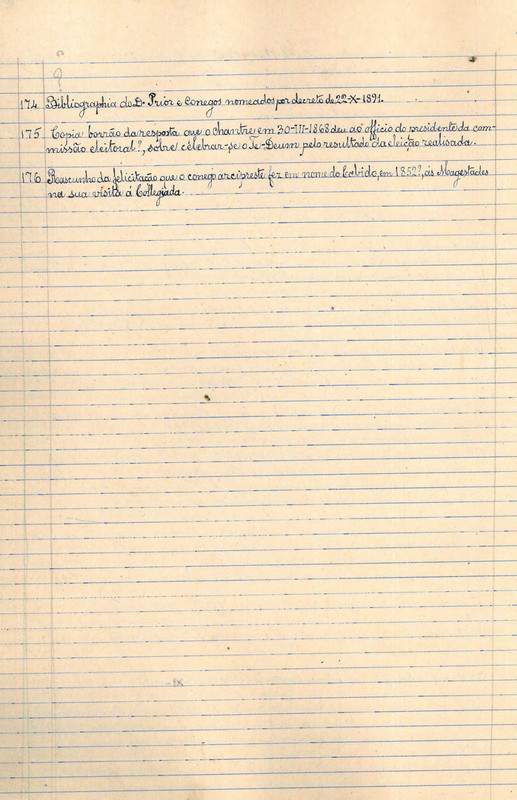 174 Bibliographia do D. Prior e Conegos nomeados por decreto de 22-X-1891.
175 Copia borrão da resposta que o chantre, em 30-III-1868 deu ao officio do presidente da com-
missão eleitoral?, sobre celebrar-se o Te-Deum pelo resultado da eleição realisada.
176 Rascunho da felicitação que o conego arcipreste fez em nome do Cabido, em 1852?, ás Magestades
na sua visita á Collegiada.